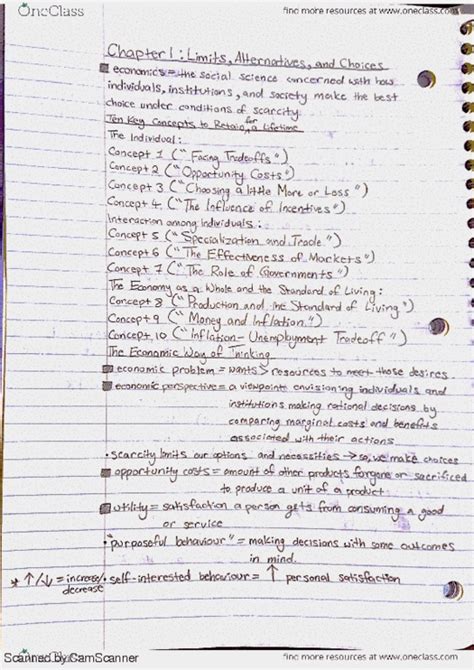 OneClass
find more resources at www.oneclass.com
Chapter 1: Limits, Alternatives, and Choices
economics = the social science concerned with how
individuals, institutions, and society make the best
choice under conditions of scarcity.
Ten Key Concepts to Retain for a Lifetime
The Individual:
Concept 1 ("Facing Tradeoffs")
Concept 2 ("Opportunity Costs")
Concept 3 ("Choosing a little More or Less")
Concept 4 ("The Influence of Incentives")
Interaction among Individuals:
Concept 5 ("Specialization and Trade")
Concept 6 ("The Effectiveness of Markets")
Concept 7 ("The Role of Governments")
The Economy as a Whole and the Standard of Living:
Concept 8 ("Production and the Standard of Living")
Concept 9 ("Money and Inflation")
Concept 10 ("Inflation-Unemployment Tradeoff")
The Economic Way of Thinking
economic problem = wants > resources to meet those desires
economic perspective = a viewpoint envisioning individuals and
institutions making rational decisions by
comparing marginal costs and benefits
associated with their actions
• scarcity limits our options and necessities → so, we make choices
opportunity costs = amount of other products forgone or sacrificed
to produce a unit of a product.
utility = satisfaction a person gets from consuming a good
or service
• "purposeful behaviour" = making decisions with some outcomes
in mind.
* ↑/↓ = increase/decrease • self-interested behaviour = ↑ personal satisfaction
Scanned by CamScanner
find more resources at www.oneclass.com